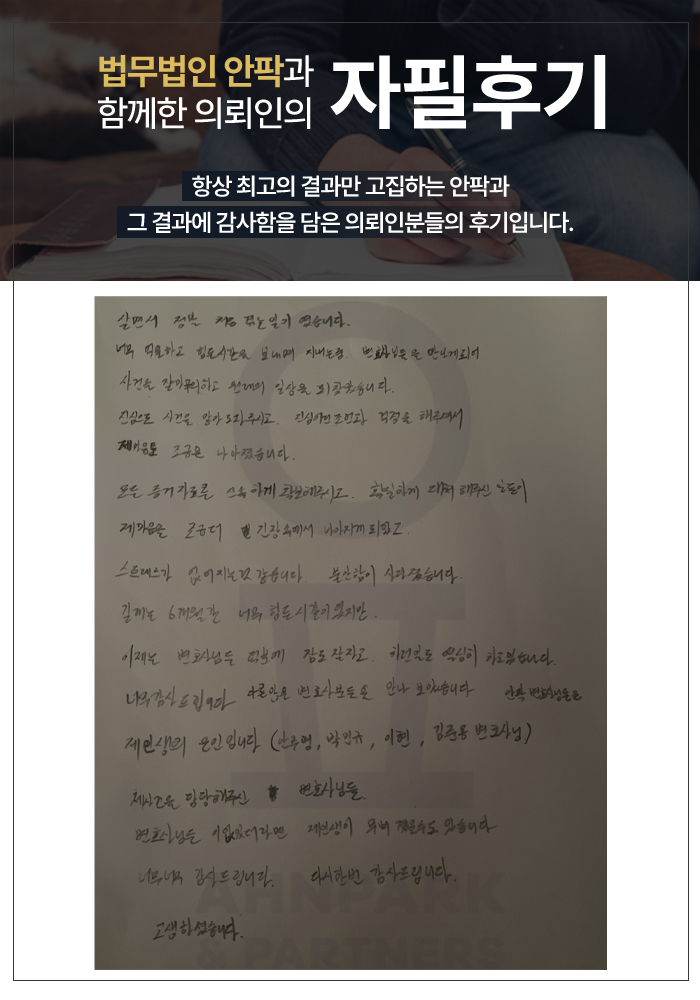 법무법인 안팍과
함께한 의뢰인의
자필후기
항상 최고의 결과만 고집하는 안팍과
그 결과에 감사함을 담은 의뢰인분들의 후기입니다.
살면서 정말 처음 겪는일이 였습니다.
너무 억울하고 힘든시간을 보내며 지내는중. 변호사님들을 만나게되어
사건을 잘마무리하고 원래의 일상을 되찾았습니다.
진심으로 사건을 맡아 도와주시고. 진심어린조언과 걱정을 해주셔서
제마음도 조금은 나아졌습니다.
모든 증거자료를 신속하게 확보해주시고. 확실하게 대처 해주신 모습이
제마음을 조금더 긴장속에서 나아지게 되었고.
스트레스가 없어지는것 같습니다 불안함이 사라졌습니다.
길게는 6개월간 너무 힘든시절이였지만.
이제는 변호사님들 덕분에 잠도 잘자고. 하던일도 열심히 하고있습니다.
너무감사드립니다 다른많은 변호사분들을 만나 보았습니다 안팍 변호사님들은
제인생의 은인입니다 (안주영, 박민규, 이현, 김준용 변호사님)
제사건을 담당해주신 변호사님들.
변호사님들 이없었더라면 제인생이 무너졌을수도 있습니다
너무너무 감사드립니다. 다시한번 감사드립니다.
고생하셨습니다.
AHNPARK
& PARTNERS